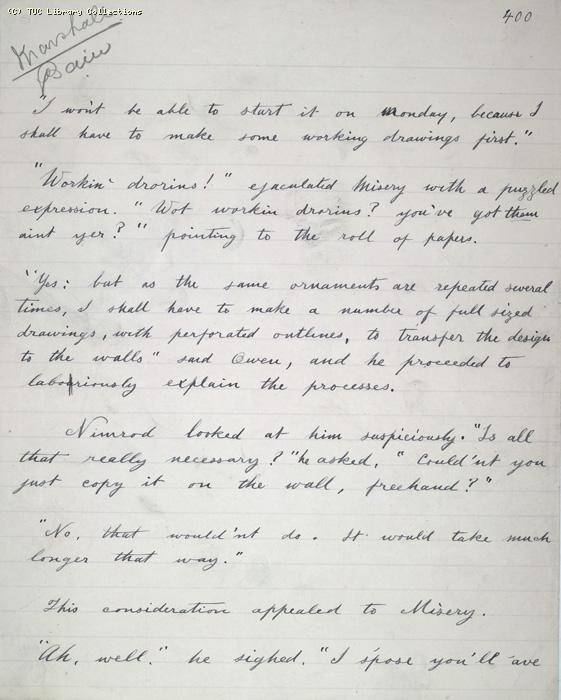 (C) TUC Library Collections
400
Marshall
"I won't be able to start it on Monday, because I
shall have to make some working drawings first."
"Workin' drorins!" ejaculated Misery with a puzzled
expression. "Wot workin drorins? you've got them
aint yer?" pointing to the roll of papers.
"Yes: but as the same ornaments are repeated several
times, I shall have to make a number of full sized
drawings, with perforated outlines, to transfer the design
to the walls" said Owen, and he proceeded to
laboriously explain the processes.
Nimrod looked at him suspiciously. "Is all
that really necessary?" he asked, "Could'nt you
just copy it on the wall, freehand?"
"No, that would'nt do. It would take much
longer that way."
This consideration appealed to Misery.
"Ah, well." he sighed. "I s'pose you'll 'ave